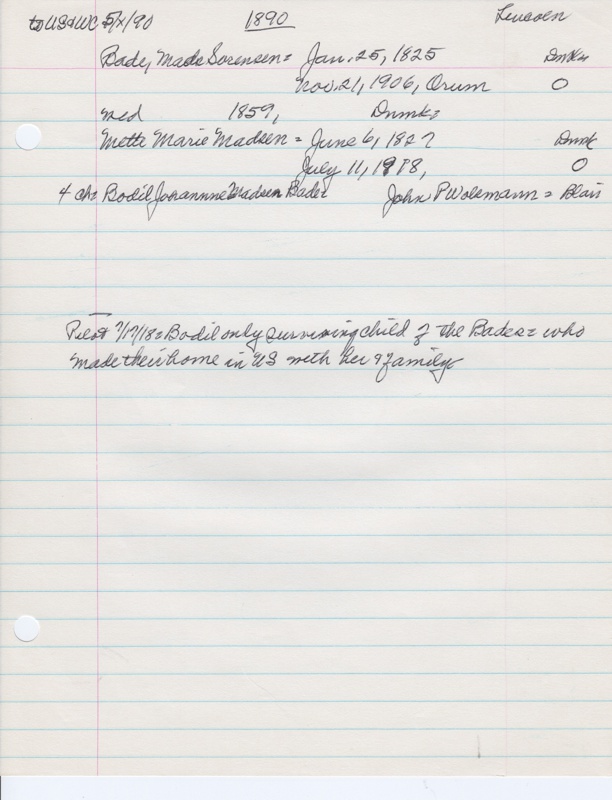 to US & WC 5/X/90 1890
Bade, Mads Sorensen = Jan. 25, 1825 Dmk
Nov. 21, 1906, Orum O
md 1859, Dnmk=
Mette Marie Madsen = June 6, 1827 Dnmk
July 11, 1918, O
4 ch= Bodil Johannne Madsen Bade= John P Wolsmann = Blair
Pilot 7/17/18= Bodil only surviving child of the Bades= who
made their home in US with her & family